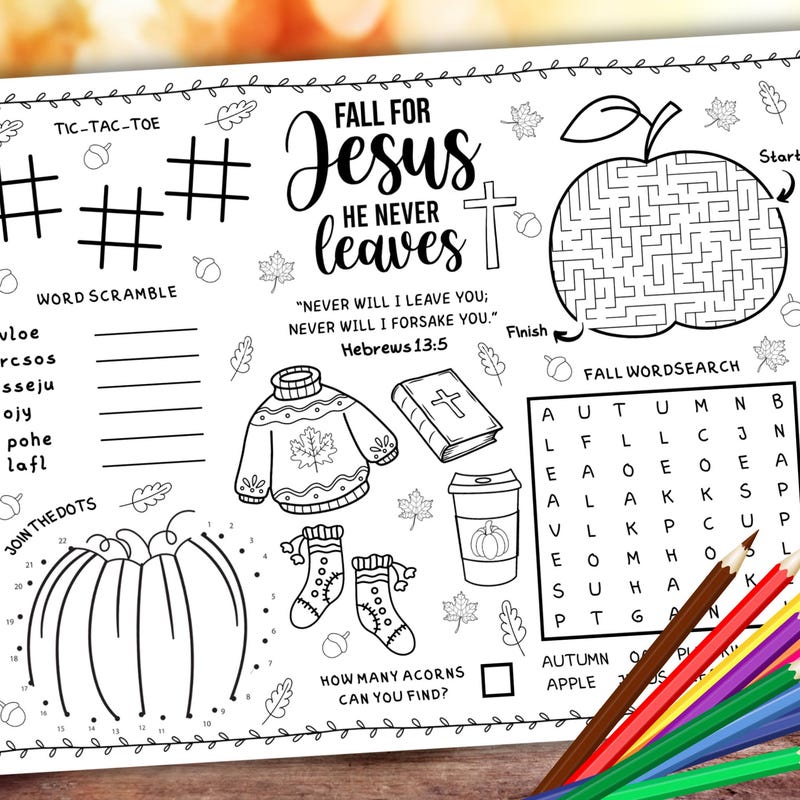 TIC-TAC-TOE
FALL FOR
Jesus
HE NEVER
leaves
"NEVER WILL I LEAVE YOU;
NEVER WILL I FORSAKE YOU."
Hebrews 13:5
Start
Finish
WORD SCRAMBLE
vloe
rcsos
sseju
ojy
pohe
lafl
FALL WORDSEARCH
A U T U M N B
L F L L C J N
E A O E O E A
A L A K K S P
V L K P C U P
E O M H O S L
S U H A K
P T G A N
AUTUMN
APPLE
JOIN THE DOTS
1
2
3
4
5
6
7
8
9
10
11
12
13
14
15
16
17
18
19
20
21
22
HOW MANY ACORNS
CAN YOU FIND?